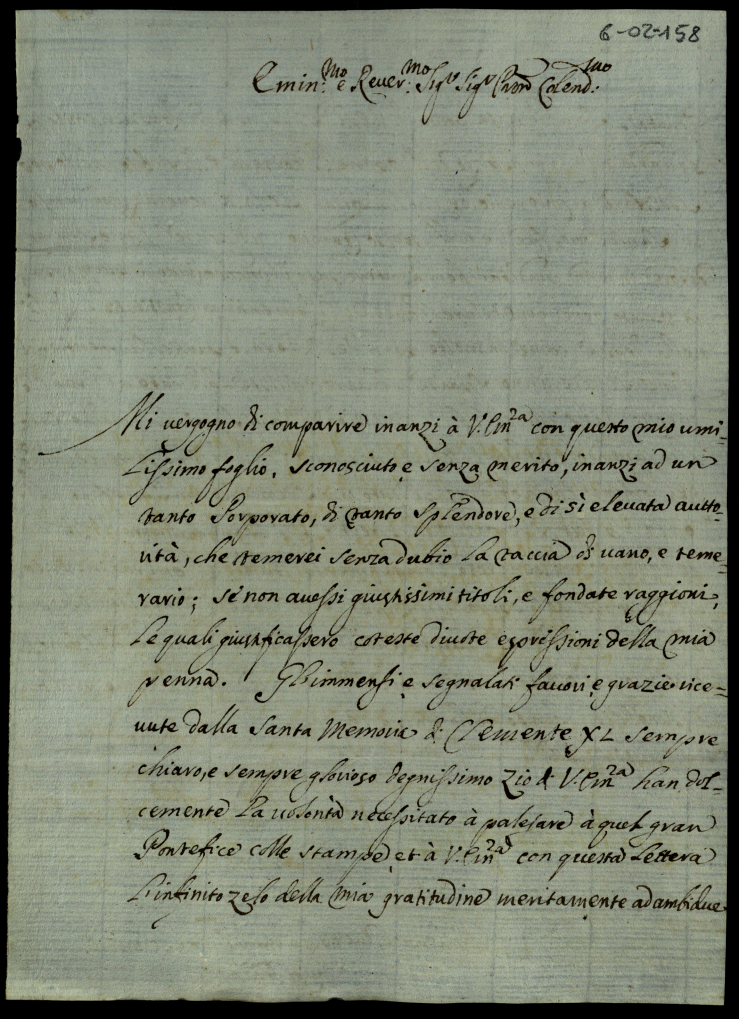 6-02-158
Emin:mo e Rever:mo Sigr Sigr Pron Colend:mo
Mi vergogno di comparire inanzi à V. Emza con questo mio umi-
lissimo foglio, sconosciuto e senza merito, inanzi ad un
tanto Porporato, di tanto splendore, e di sì elevata autto-
rità, che temerei senza dubio la taccia di vano, e teme-
rario; se non avessi giustissimi titoli, e fondate raggioni,
le quali giustificassero coteste divote espressioni della mia
penna. Gl'immensi e segnalati favori e grazie rice-
vute dalla Santa Memoria di Clemente XI sempre
chiaro, e sempre glorioso degnissimo Zio di V. Emza han dol-
cemente la volontà necessitato à palesare à quel gran
Pontefice colle stampe, et à V. Emza con questa lettera
l'infinito zelo della mia gratitudine meritamente ad ambidue